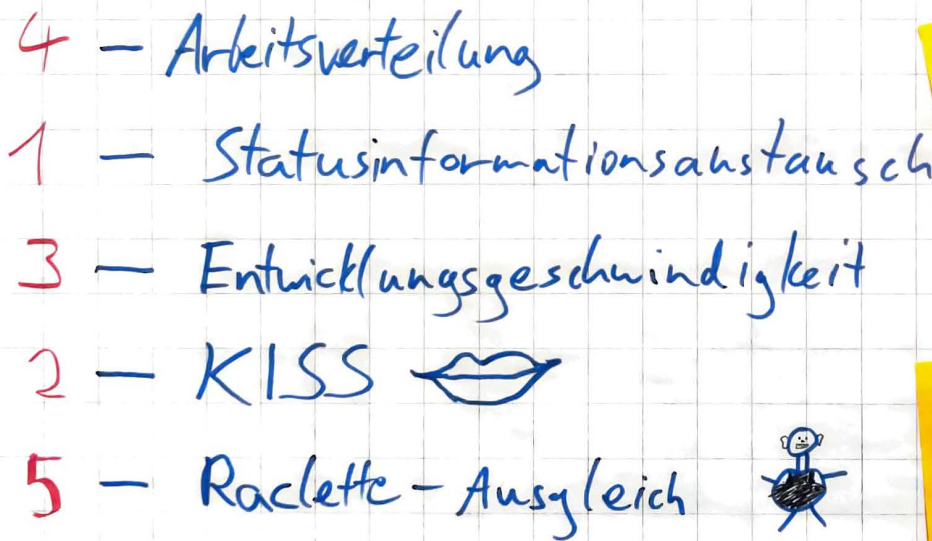 4 - Arbeitsverteilung
1 - Statusinformationsaustausch
3 - Entwicklungsgeschwindigkeit
2 - KISS
5 - Raclette-Ausgleich